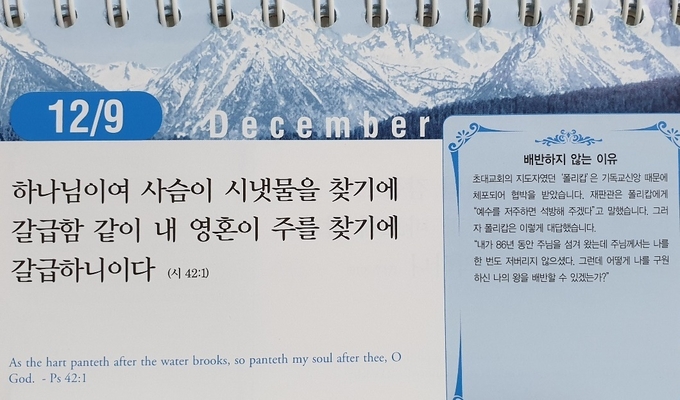 12/9
December
하나님이여 사슴이 시냇물을 찾기에
갈급함 같이 내 영혼이 주를 찾기에
갈급하니이다 (시 42:1)
As the hart panteth after the water brooks, so panteth my soul after thee, O
God. - Ps 42:1
배반하지 않는 이유
초대교회의 지도자였던 '폴리캅'은 기독교신앙 때문에
체포되어 협박을 받았습니다. 재판관은 폴리캅에게
"예수를 저주하면 석방해 주겠다"고 말했습니다. 그러
자 폴리캅은 이렇게 대답했습니다.
"내가 86년 동안 주님을 섬겨 왔는데 주님께서는 나를
한 번도 저버리지 않으셨다. 그런데 어떻게 나를 구원
하신 나의 왕을 배반할 수 있겠는가?"